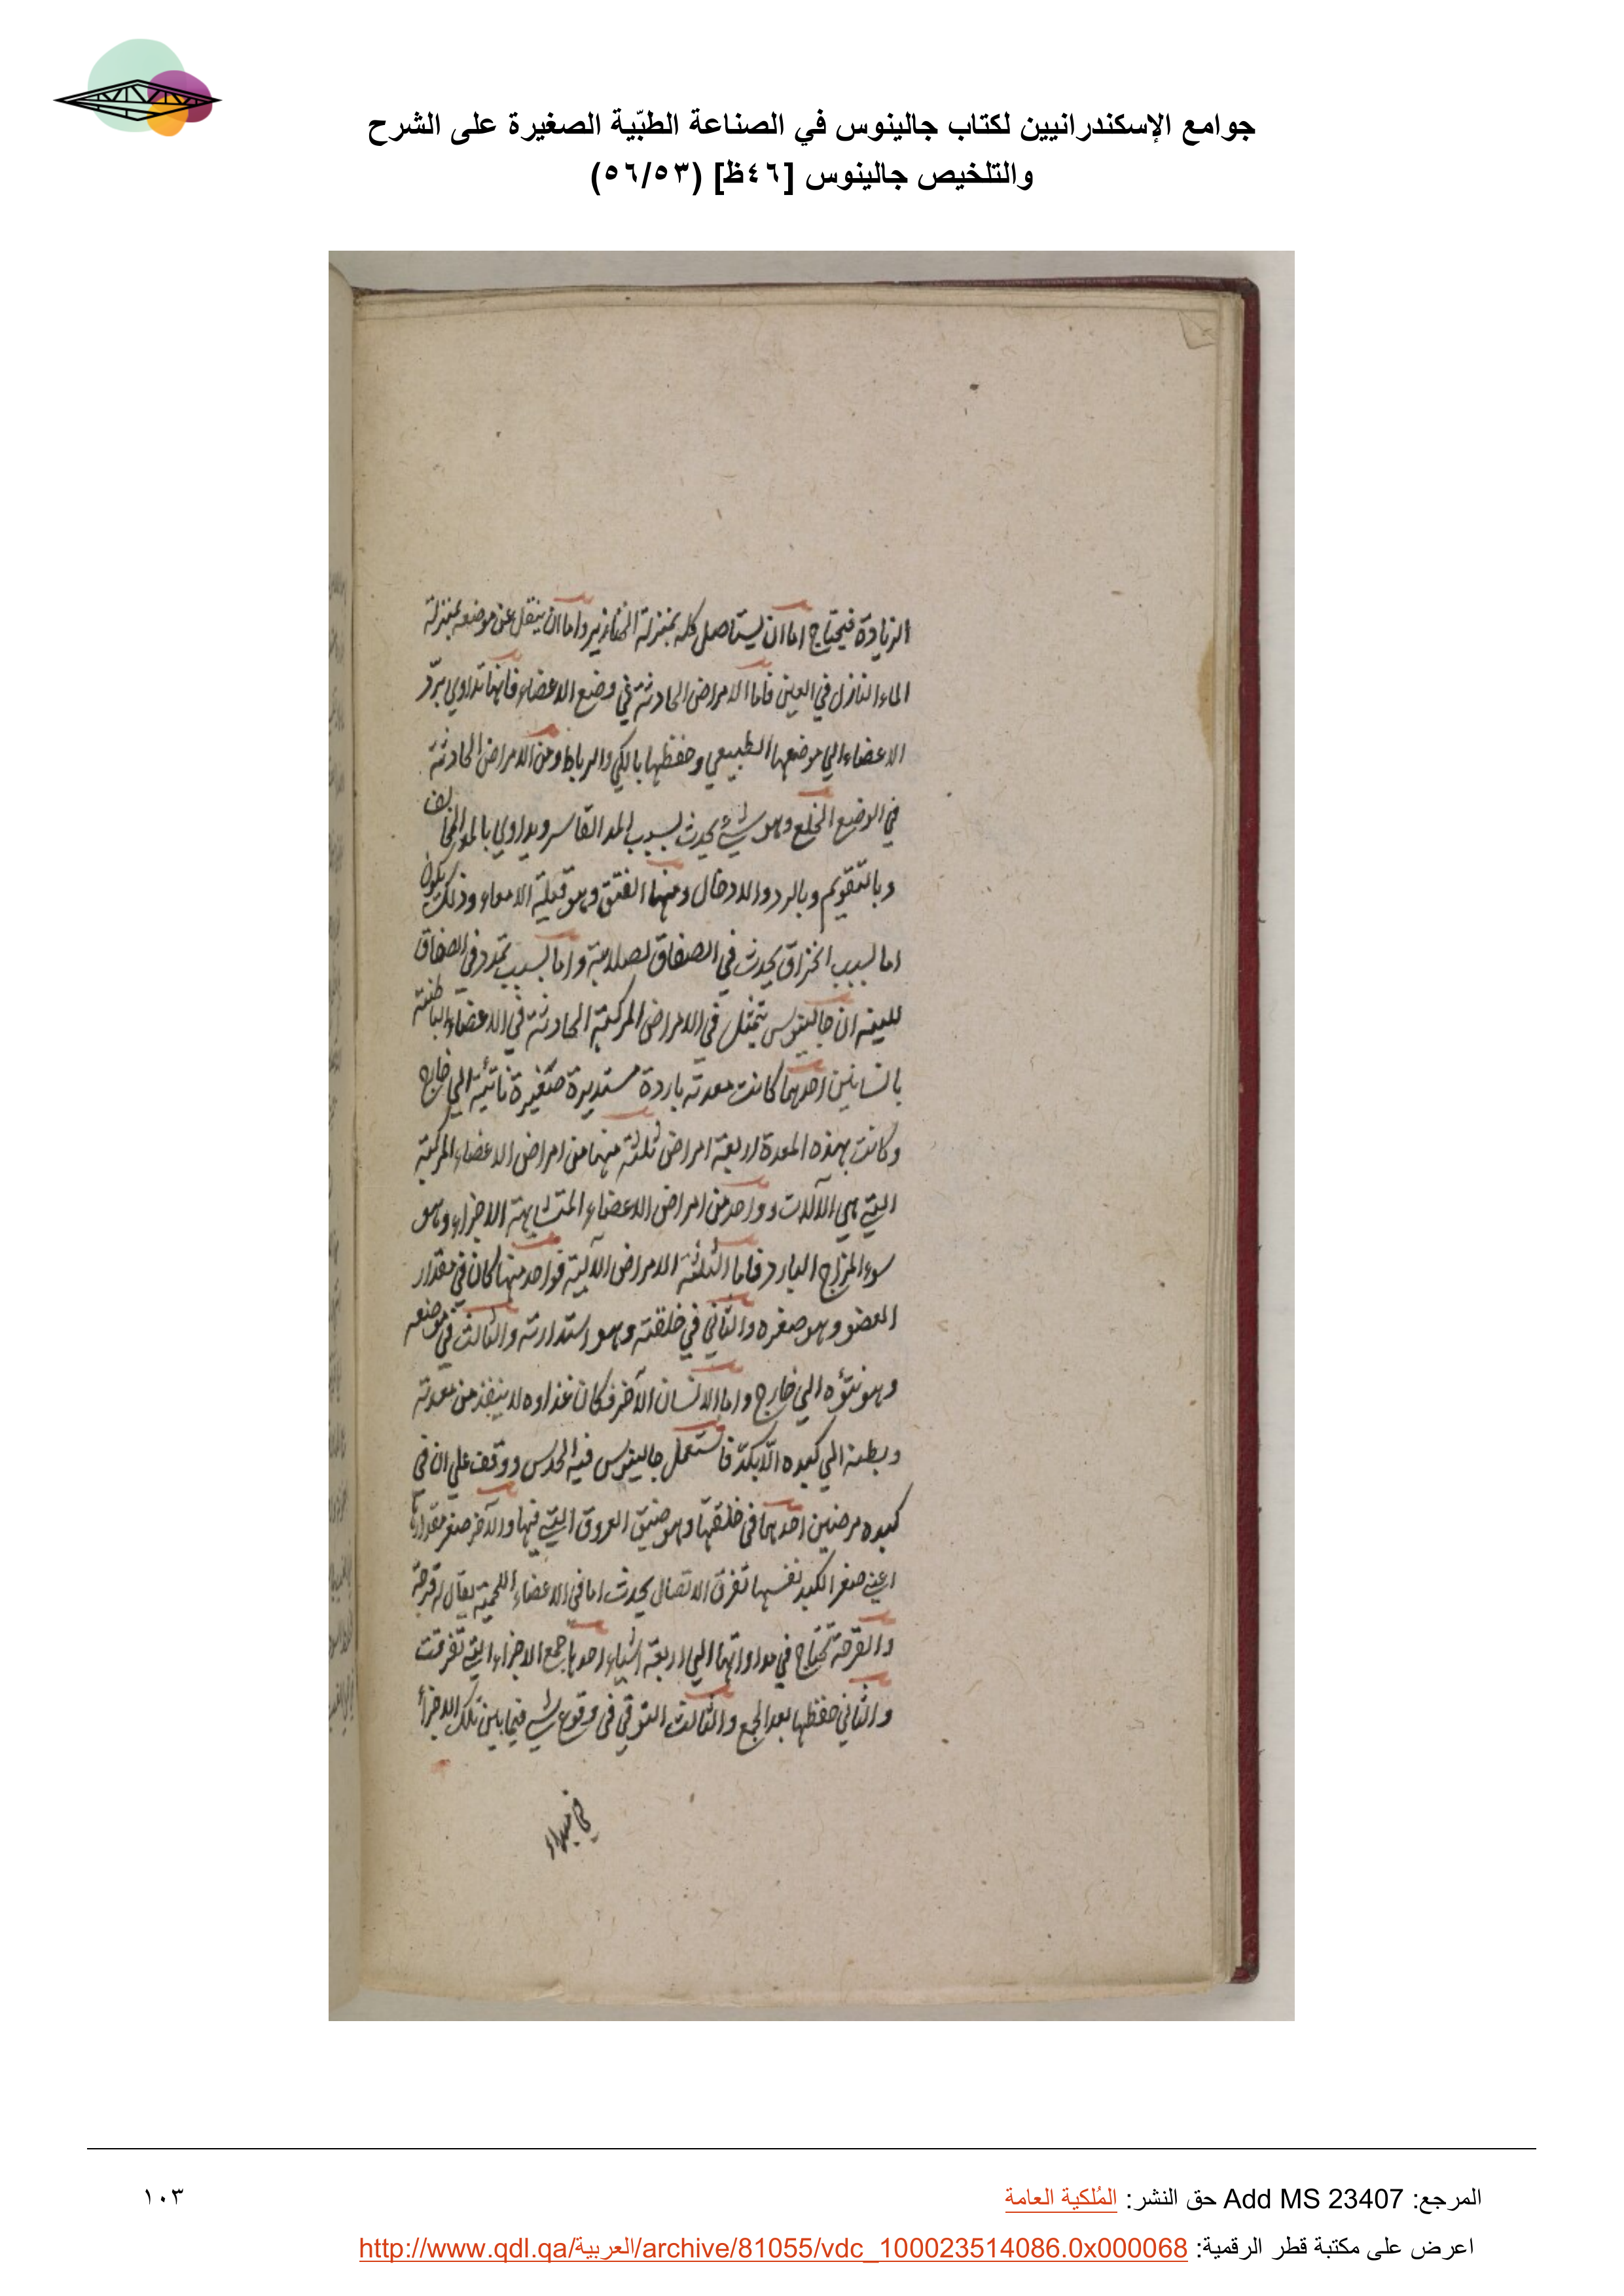 جوامع الإسكندرانيين لكتاب جالينوس في الصناعة الطبّية الصغيرة على الشرح
والتلخيص جالينوس [٤٦ظ] (٥٦/٥٣)
الزيادة فيحتاج اما ان يستاصل كله بمنزلة الخنازير واما ان ينقل عن موضعه بمنزلة
الماء النازل في العين فاما الامراض الحادثة في وضع الاعضاء فانها تداوي بردّ
الاعضاء الي موضعها الطبيعي وحفظها بالكي والرباط ومن الامراض الحادثة
في الوضع الخلع وهو شيء يحدث بسبب المد القاسر ويداوي بالمد المخالف
وبالتقويم وبالرد والادخال ومنها الفتق وهو قيلة الامعاء وذلك يكون
اما بسبب انخراق يحدث في الصفاق لصلابته واما بسبب تمدد في الصفاق
للينه ان جالينوس يتمثل في الامراض المركبة الحادثة في الاعضاء الباطنة
بانسانين احدهما كانت معدته باردة مستديرة صغيرة ناتئة الي خارج
وكانت بهذه المعدة اربعة امراض ثلثة منها من امراض الاعضاء المركبة
التي هي الآلات وواحد من امراض الاعضاء المتشابهة الاجزاء وهو
سوء المزاج البارد فاما الثلثة الامراض الآلية فواحد منها كان في مقدار
العضو وهو صغره والثاني في خلقته وهو استدارته والثالث في موضعه
وهو نتؤه الي خارج واما الانسان الآخر فكان غذاوه لا ينفذ من معدته
وبطنه الي كبده الّا بكدّ فاستعمل جالينوس فيه الحدس ووقف علي ان في
كبده مرضين احدهما في خلقتها وهو ضيق العروق التي فيها والآخر صغر مقدارها
اعني صغر الكبد نفسها تفرق الاتصال يحدث اما في الاعضاء اللحمية يقال له قرحة
والقرحة تحتاج في مداواتها الي اربعة اشياء احدها جمع الاجزاء التي تفرقت
والثاني حفظها بعد الجمع والثالث التوقي في وقوع شي فيما بين تلك الاجزأ
المرجع: Add MS 23407 حق النشر: المُلكية العامة
١٠٣
اعرض على مكتبة قطر الرقمية: http://www.qdl.qa/العربية/archive/81055/vdc_100023514086.0x000068